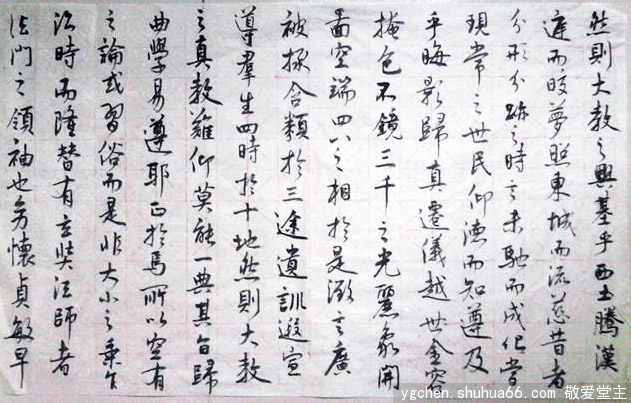 然則大教之興基乎西土騰漢
庭而皎夢照東城而流慈昔者
分形分跡之時言未馳而成化當
現常之世民仰德而知遵及
乎晦影歸真遷儀越世金容
掩色不鏡三千之光麗象開
圖空端四八之相於是微言廣
被拯含類於三途遺訓遐宣
導羣生四時於十地然則大教
之真教難仰莫能一典其旨歸
曲學易遵耶正於焉所以空有
之論或習俗而是非大小之乘乍
沿時而隆替有玄奘法師者
法門之領袖也幼懷貞敏早
ygchen.shuhua66.com 敬爱堂主